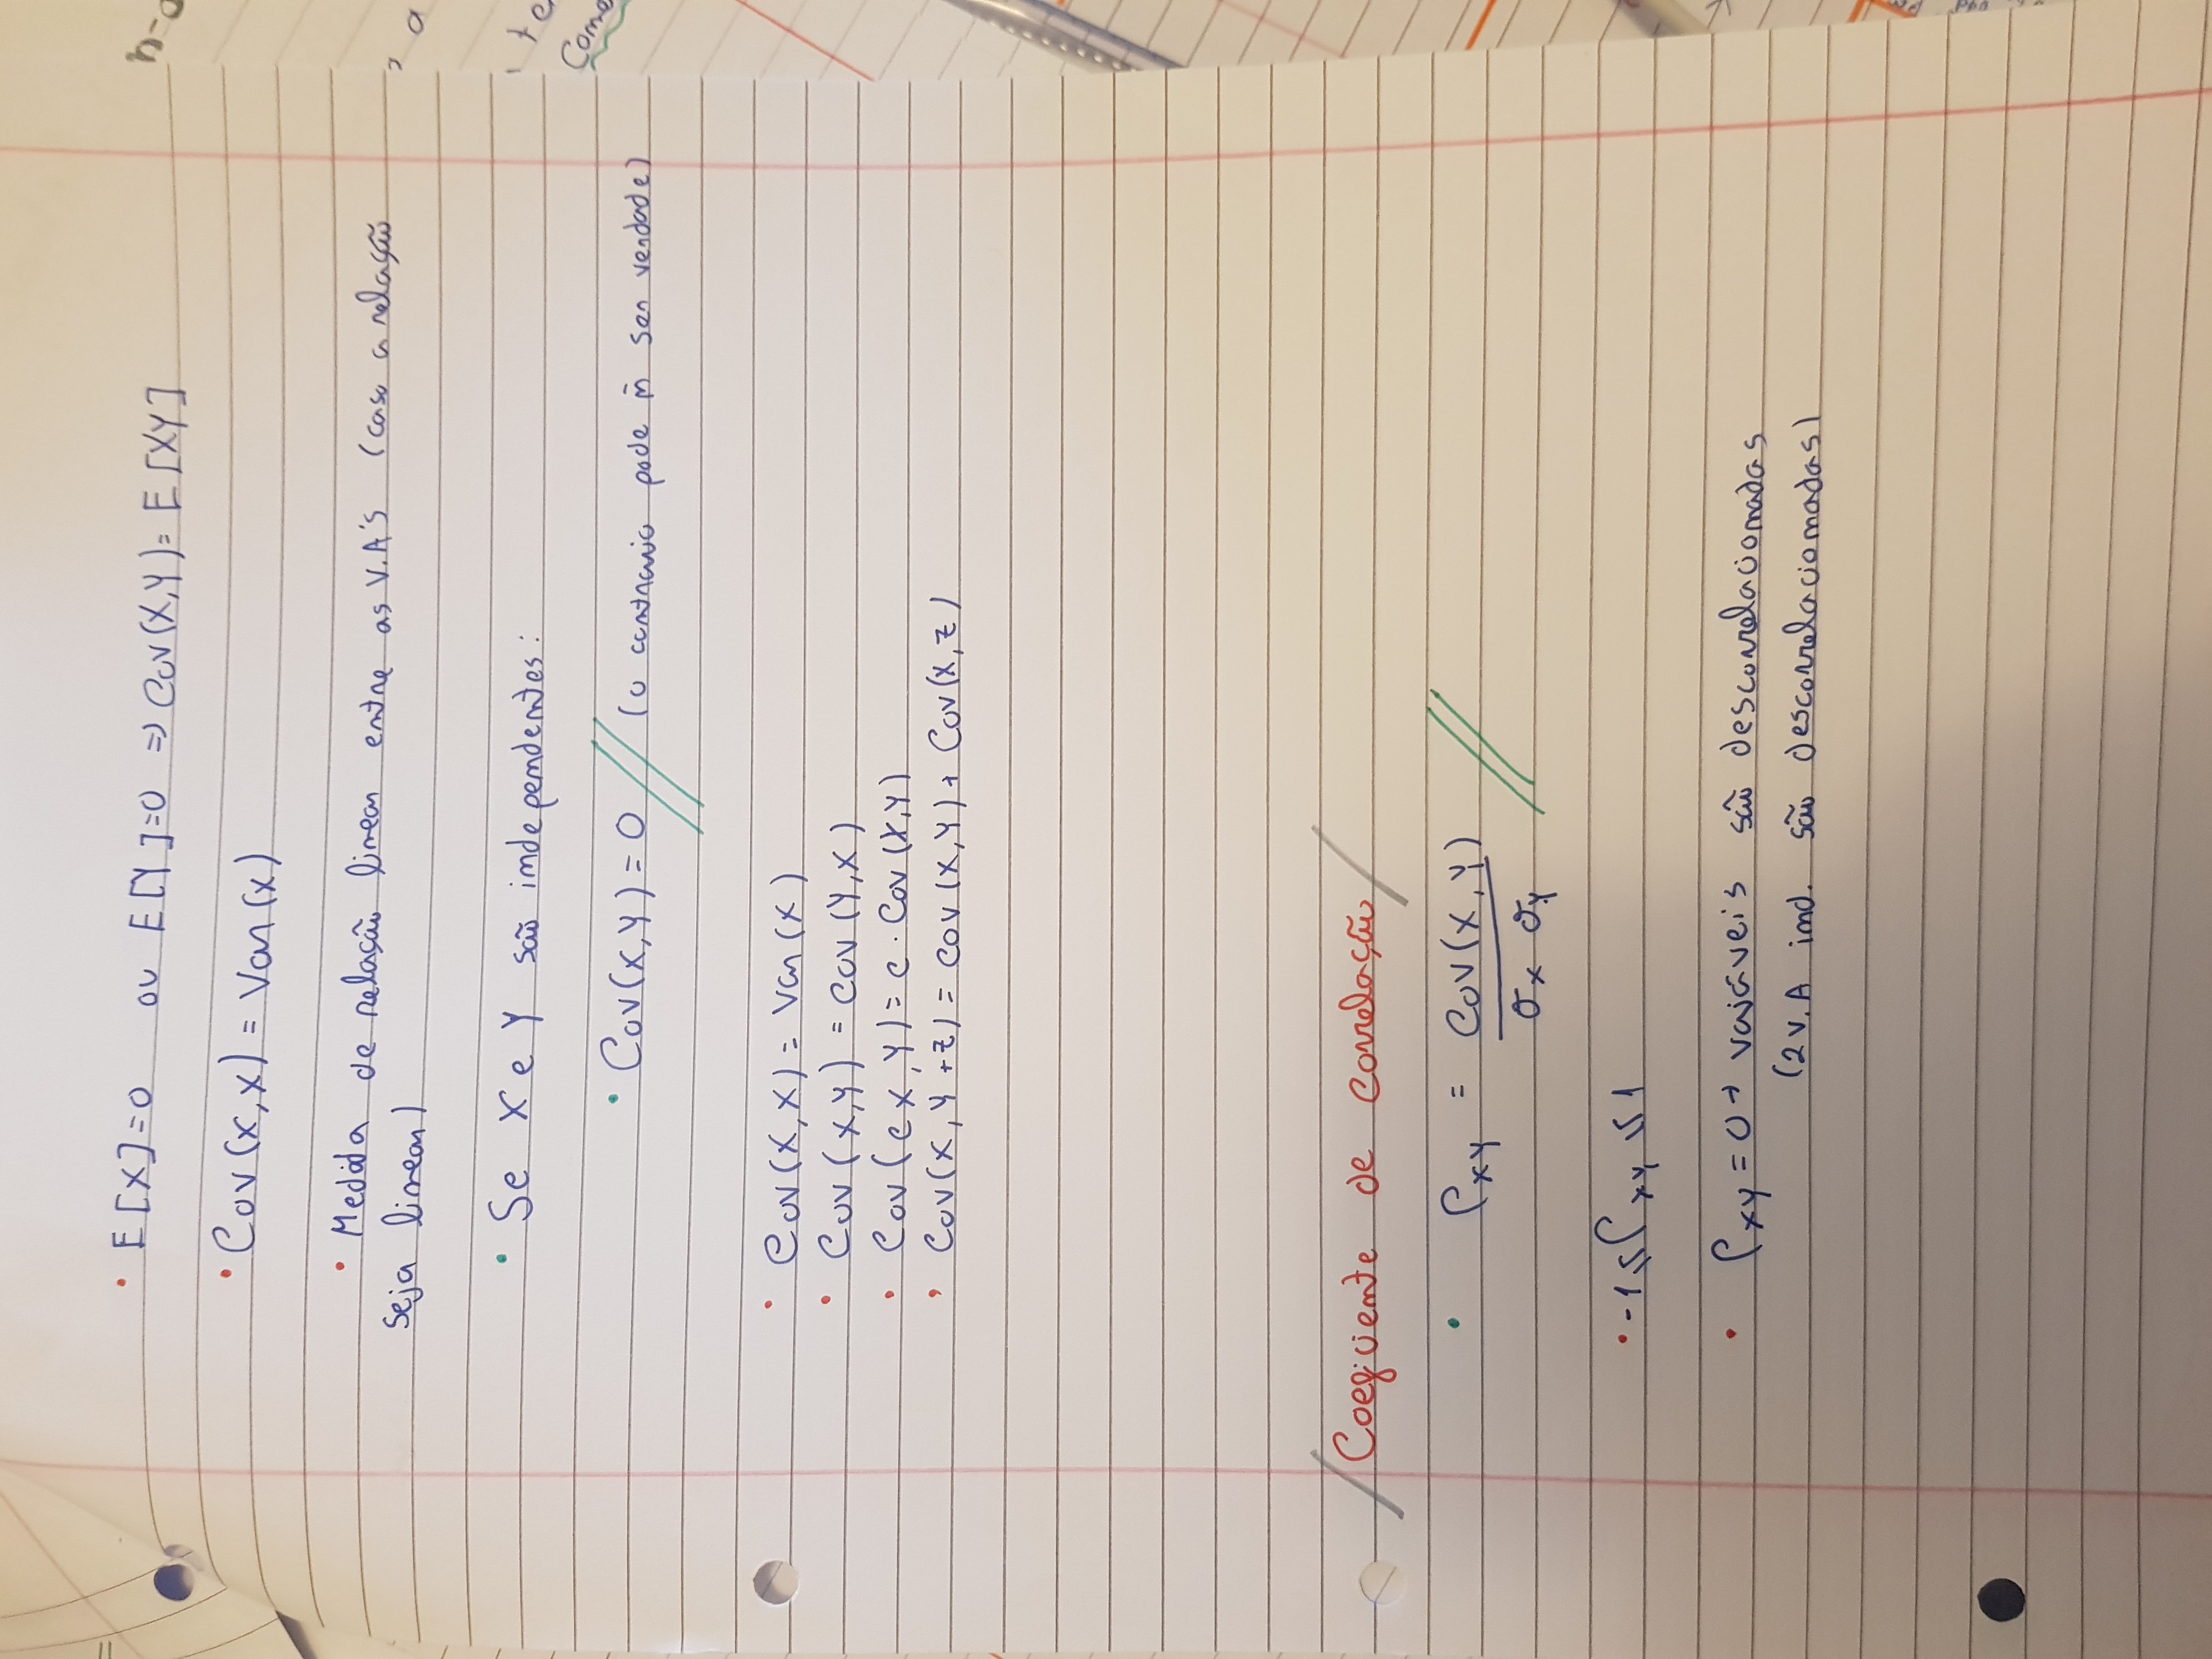 • E[X]=0 ou E[Y]=0 => Cov(X,Y)= E[XY]
• Cov(X,X) = Var(X)
• Medida de relação linear entre as V.A's (caso a relação
seja linear)
• Se X e Y são independentes:
• Cov(X,Y)=0 // (o contrario pode ñ ser verdade)
• Cov(X,X)= Var(X)
• Cov(X,Y) = Cov(Y,X)
• Cov(cX,Y)= c. Cov(X,Y)
• Cov(X,Y+Z)= Cov(X,Y)+ Cov(X,Z)
/Coeficiente de correlação/
• ρxy = Cov(X,Y) //
σx σy
• -1≤ρxy≤1
• ρxy=0→ vaiáveis são descorrelacionadas
(2 V.A ind. são descorrelacionadas)
n-
, a
Come